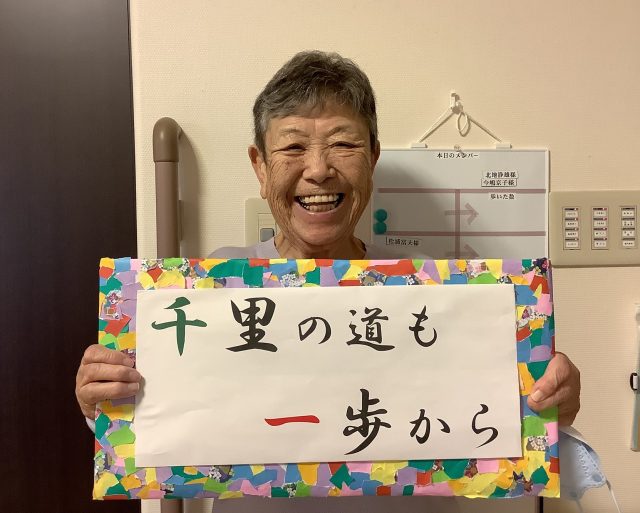 本日のメンバー
北地静雄様
今嶋京子様
歩いた数
松浦富夫様
千里の道も
一歩から